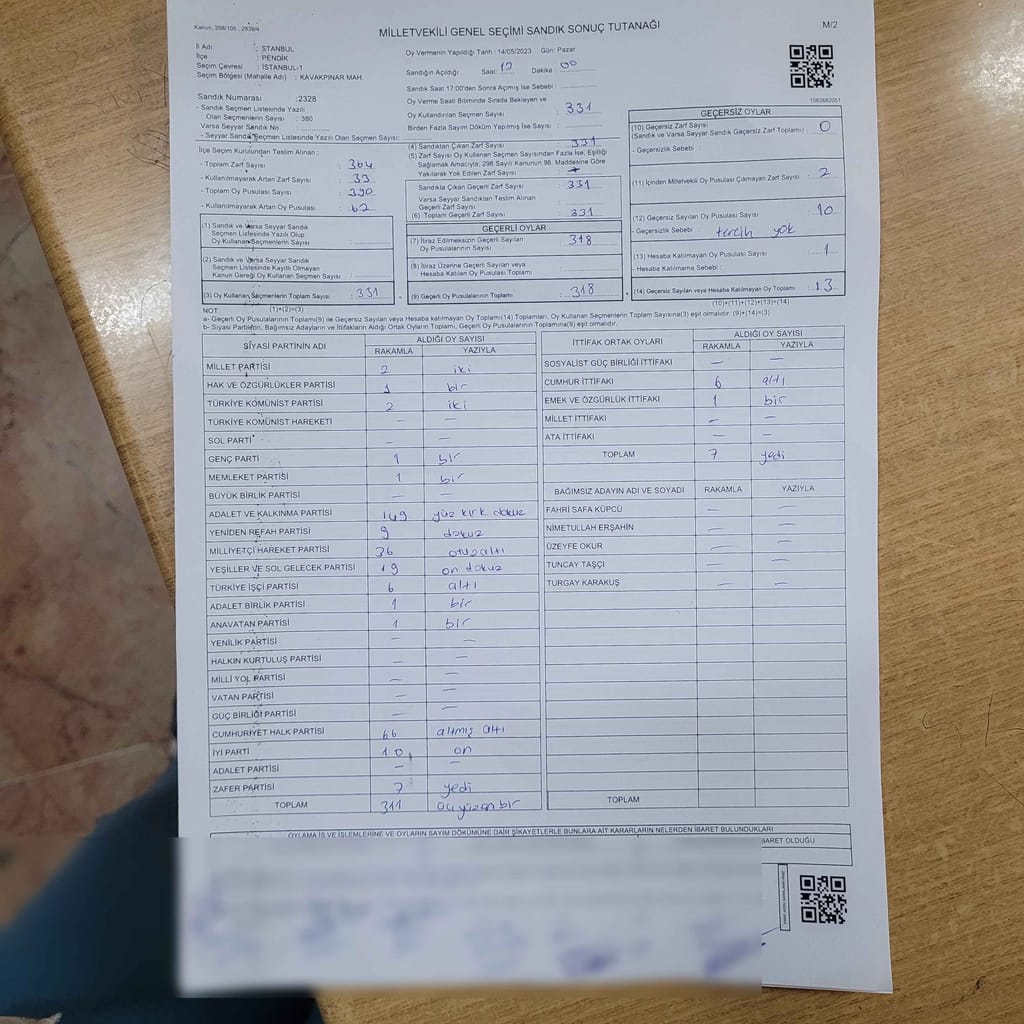 Kanun: 298/105 , 2839/4
MİLLETVEKİLİ GENEL SEÇİMİ SANDIK SONUÇ TUTANAĞI
M/2
İl Adı : İSTANBUL
İlçe : PENDİK
Seçim Çevresi : İSTANBUL-1
Seçim Bölgesi (Mahalle Adı) : KAVAKPINAR MAH.
Sandık Numarası :2328
- Sandık Seçmen Listesinde Yazılı
Olan Seçmenlerin Sayısı : 380
Varsa Seyyar Sandık No :
- Seyyar Sandık Seçmen Listesinde Yazılı Olan Seçmen Sayısı:
İlçe Seçim Kurulundan Teslim Alınan :
- Toplam Zarf Sayısı : 364
- Kullanılmayarak Artan Zarf Sayısı : 33
- Toplam Oy Pusulası Sayısı : 390
- Kullanılmayarak Artan Oy Pusulası : 62
(1) Sandık ve Varsa Seyyar Sandık
Seçmen Listesinde Yazılı Olup
Oy Kullanan Seçmenlerin Sayısı :
(2) Sandık ve Varsa Seyyar Sandık
Seçmen Listesinde Kayıtlı Olmayan
Kanun Gereği Oy Kullanan Seçmen Sayısı :
(3) Oy Kullanan Seçmenlerin Toplam Sayısı : 331
(1)+(2)=(3)
Oy Vermenin Yapıldığı Tarih : 14/05/2023 Gün: Pazar
Sandığın Açıldığı Saat: 17 Dakika : 00
Sandık Saat 17:00'den Sonra Açımış İse Sebebi :
Oy Verme Saati Bitiminde Sırada Bekleyen ve
Oy Kullandırılan Seçmen Sayısı : 331
Birden Fazla Sayım Döküm Yapılmış İse Sayısı :
(4) Sandıktan Çıkan Zarf Sayısı : 331
(5) Zarf Sayısı Oy Kullanan Seçmen Sayısından Fazla İse, Eşitliği
Sağlamak Amacıyla; 298 Sayılı Kanunun 98. Maddesine Göre
Yakılarak Yok Edilen Zarf Sayısı :
Sandıkta Çıkan Geçerli Zarf Sayısı : 331
Varsa Seyyar Sandıktan Teslim Alınan
Geçerli Zarf Sayısı :
(6) Toplam Geçerli Zarf Sayısı : 331
GEÇERLİ OYLAR
(7) İtiraz Edilmeksizin Geçerli Sayılan
Oy Pusulalarının Sayısı : 318
(8) İtiraz Üzerine Geçerli Sayılan veya
Hesaba Katılan Oy Pusulası Toplamı :
(9) Geçerli Oy Pusulalarının Toplamı : 318
1083682051
GEÇERSİZ OYLAR
(10) Geçersiz Zarf Sayısı
(Sandık ve Varsa Seyyar Sandık Geçersiz Zarf Toplamı) : 0
- Geçersizlik Sebebi :
(11) İçinden Milletvekili Oy Pusulası Çıkmayan Zarf Sayısı : 2
(12) Geçersiz Sayılan Oy Pusulası Sayısı : 10
- Geçersizlik Sebebi : tercih yok
(13) Hesaba Katılmayan Oy Pusulası : 1
- Hesaba Katılmama Sebebi :
(14) Geçersiz Sayılan veya Hesaba Katılmayan Oy Toplamı : 13
(10)+(11)+(12)+(13)=(14)
NOT:
a- Geçerli Oy Pusulalarının Toplamı(9) ile Geçersiz Sayılan veya Hesaba katılmayan Oy Toplamı(14) Toplamları, Oy Kullanan Seçmenlerin Toplam Sayısına(3) eşit olmalıdır. (9)+(14)=(3)
b- Siyasi Partilerin, Bağımsız Adayların ve İttifakların Aldığı Ortak Oyların Toplamı, Geçerli Oy Pusulalarının Toplamına(9) eşit olmalıdır.
SİYASİ PARTİNİN ADI ALDIĞI OY SAYISI
RAKAMLA YAZIYLA
MİLLET PARTİSİ 2 iki
HAK VE ÖZGÜRLÜKLER PARTİSİ 1 bir
TÜRKİYE KOMÜNİST PARTİSİ 2 iki
TÜRKİYE KOMÜNİST HAREKETİ — —
SOL PARTİ — —
GENÇ PARTİ 1 bir
MEMLEKET PARTİSİ 1 bir
BÜYÜK BİRLİK PARTİSİ — —
ADALET VE KALKINMA PARTİSİ 149 yüz kırk dokuz
YENİDEN REFAH PARTİSİ 9 dokuz
MİLLİYETÇİ HAREKET PARTİSİ 36 otuz altı
YEŞİLLER VE SOL GELECEK PARTİSİ 19 on dokuz
TÜRKİYE İŞÇİ PARTİSİ 6 altı
ADALET BİRLİK PARTİSİ 1 bir
ANAVATAN PARTİSİ 1 bir
YENİLİK PARTİSİ — —
HALKIN KURTULUŞ PARTİSİ — —
MİLLİ YOL PARTİSİ — —
VATAN PARTİSİ — —
GÜÇ BİRLİĞİ PARTİSİ — —
CUMHURİYET HALK PARTİSİ 66 altmış altı
İYİ PARTİ 10 on
ADALET PARTİSİ — —
ZAFER PARTİSİ 7 yedi
TOPLAM 311 üçyüzon bir
İTTİFAK ORTAK OYLARI ALDIĞI OY SAYISI
RAKAMLA YAZIYLA
SOSYALİST GÜÇ BİRLİĞİ İTTİFAKI — —
CUMHUR İTTİFAKI 6 altı
EMEK VE ÖZGÜRLÜK İTTİFAKI 1 bir
MİLLET İTTİFAKI — —
ATA İTTİFAKI — —
TOPLAM 7 yedi
BAĞIMSIZ ADAYIN ADI VE SOYADI RAKAMLA YAZIYLA
FAHRİ SAFA KÜPCÜ — —
NİMETULLAH ERŞAHİN — —
ÜZEYFE OKUR — —
TUNCAY TAŞÇI — —
TURGAY KARAKUŞ — —
TOPLAM
OYLAMA İŞ VE İŞLEMLERİNE VE OYLARIN SAYIM DÖKÜMÜNE DAİR ŞİKAYETLERLE BUNLARA AİT KARARLARIN NELERDEN İBARET BULUNDUKLARI
BARET OLDUĞU